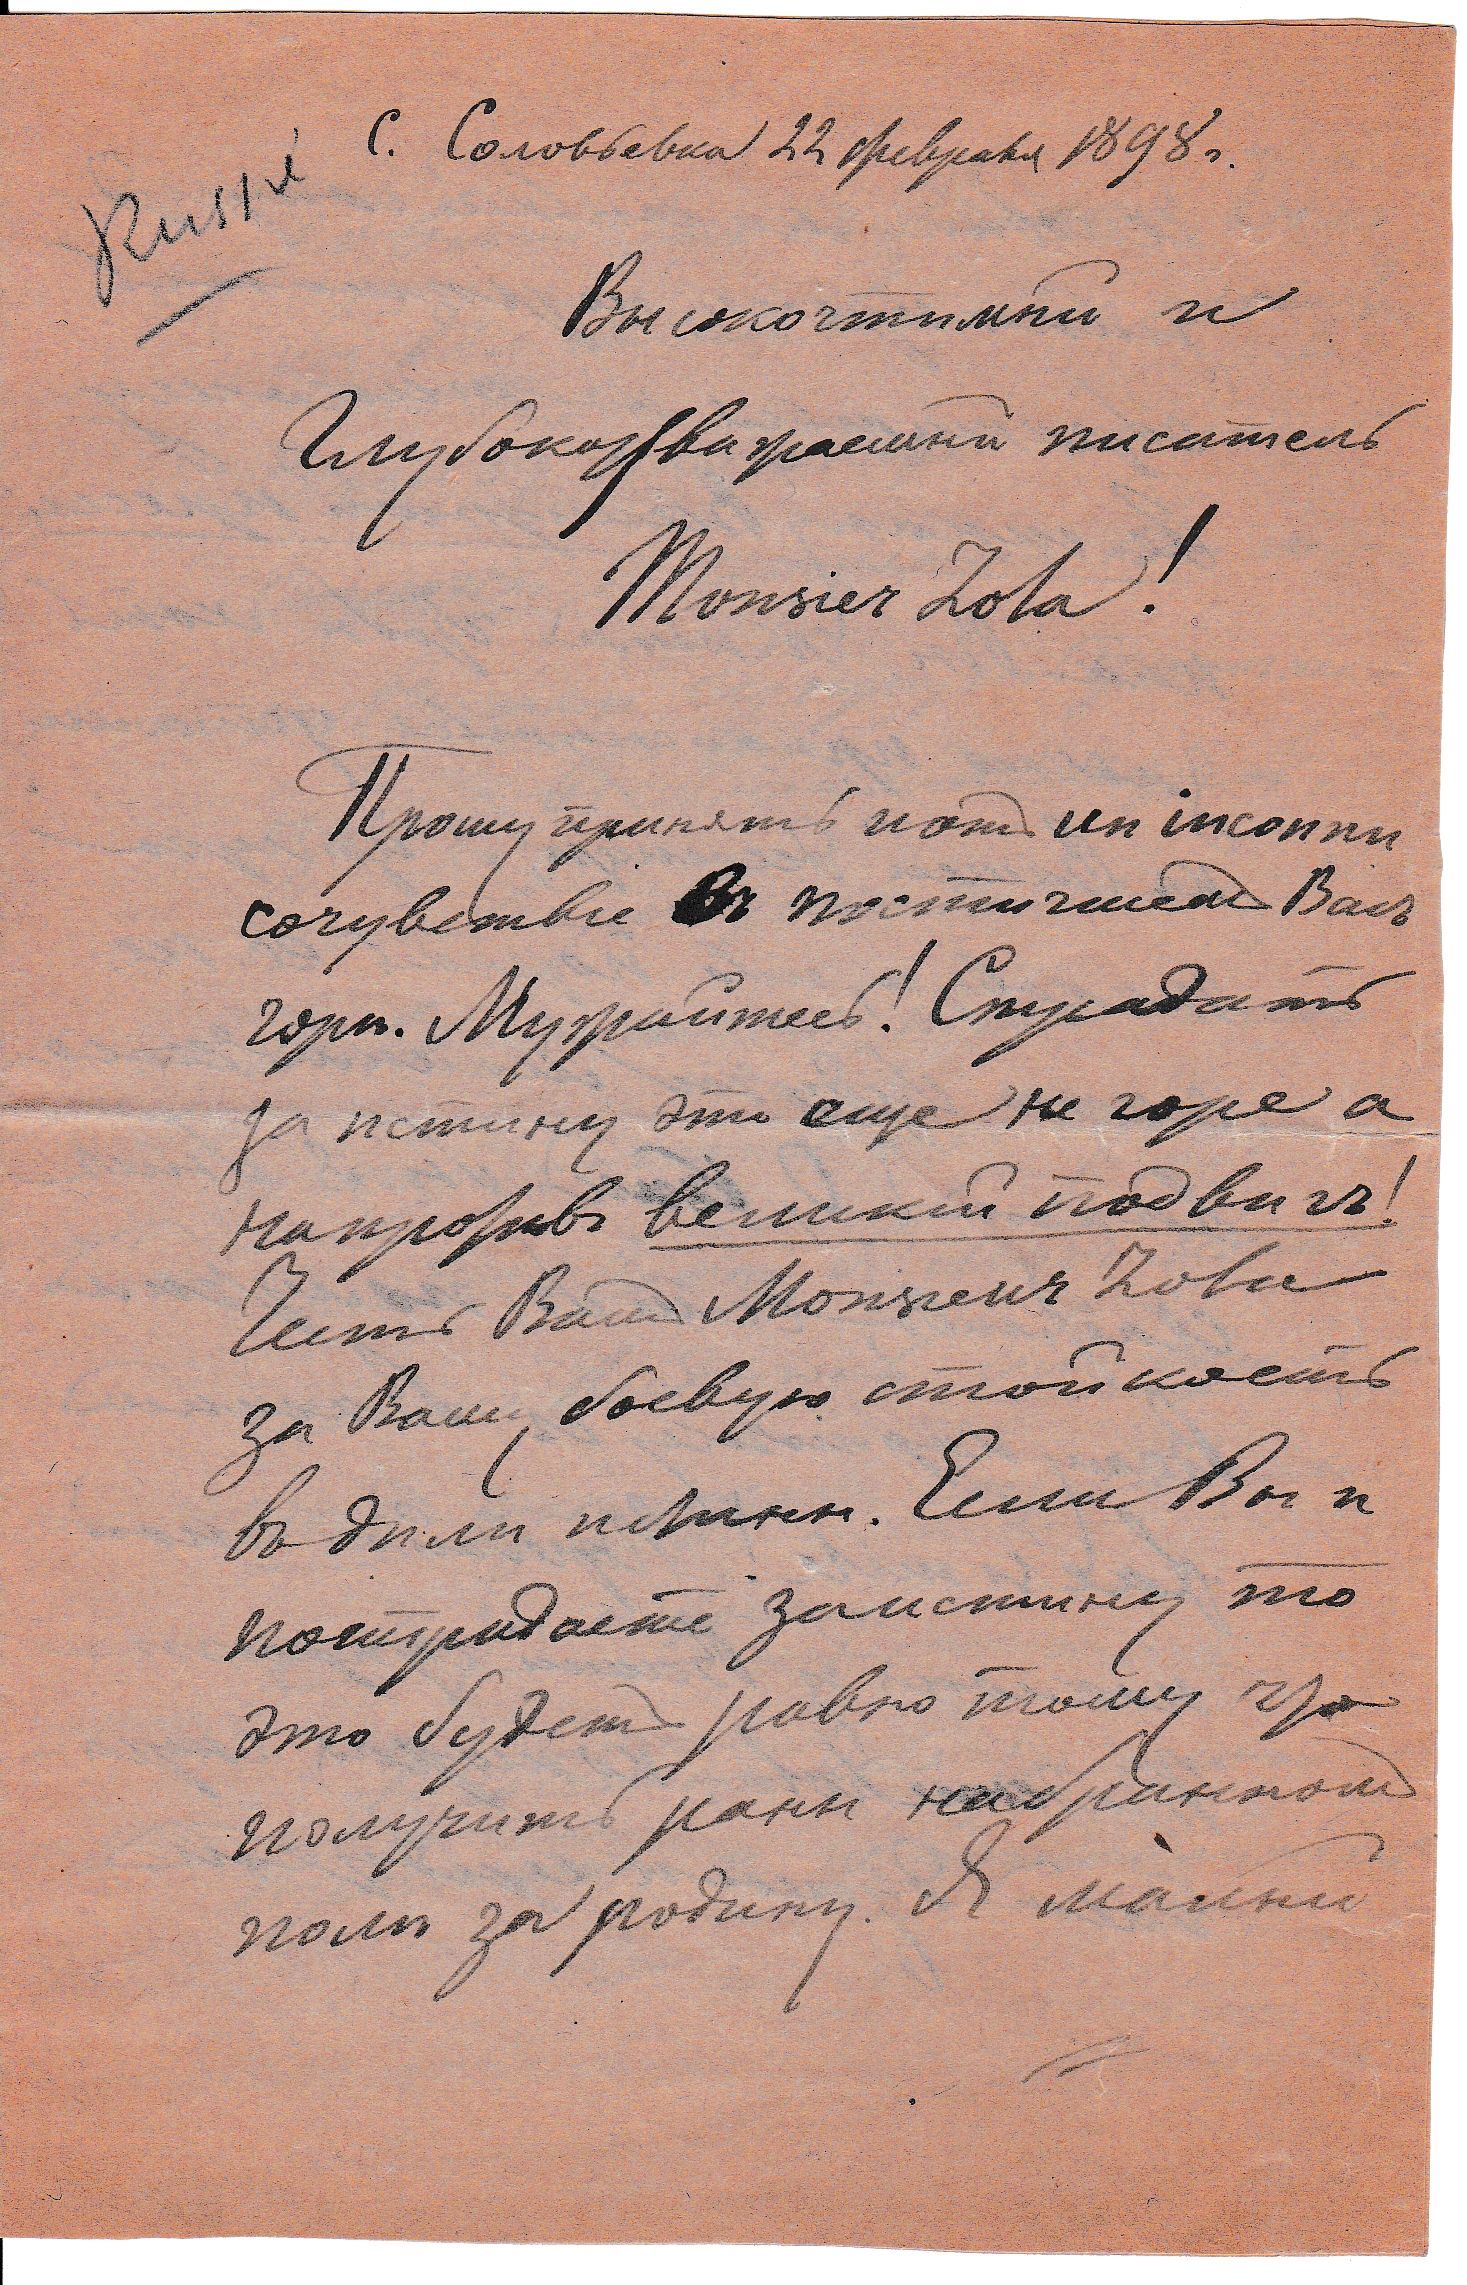 Russie
с. Соловьевка 22 февраля 1898 г.
Высокочтимый и
Глубокоуважаемый писатель
Monsier Zola!
Прошу принять отъ un inconnu
сочувствіе въ постигшемъ Васъ
горѣ. Мужайтесь! Страдать
за истину это еще не горе а
напротивъ великій подвигъ!
Честь Вамъ Monsieur Zola
за Вашу боевую стойкость
въ дѣлѣ истины. Если Вы и
пострадаете за истину то
это будетъ равно тому что
получить раны на бранномъ
полѣ за родину. Я малый